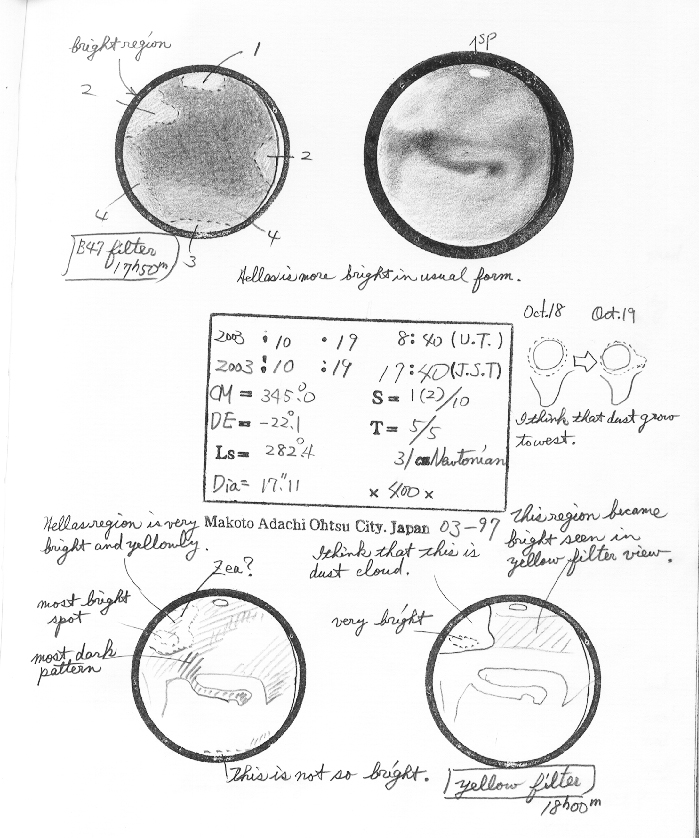 bright region
1
2
2
4
4
3
B47 filter
17h50m
1sp
Hellas is more bright in usual form.
2003 : 10 · 19 8:40 (U.T.)
2003 : 10 : 19 17:40 (J.S.T)
CM = 345.°0 S = 1(2)/10
DE = -22.°1 T = 5/5
Ls = 282.°4 31cm Newtonian
Dia = 17."11 × 400 ×
Oct.18 Oct.19
I think that dust grow
to west.
Makoto Adachi Ohtsu City. Japan 03-97
Hellas region is very
bright and yellowly.
Zea?
most bright
spot
most dark
pattern
This is not so bright.
I think that this is
dust cloud.
very bright
This region became
bright seen in
yellow filter view.
yellow filter
18h00m